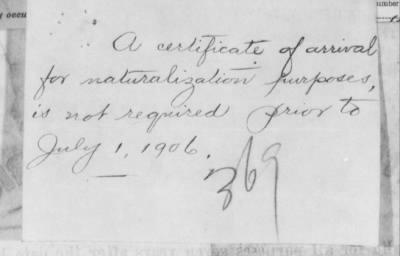 y occu
umber
A certificate of arrival
for naturalization purposes,
is not required prior to
July 1, 1906.
369